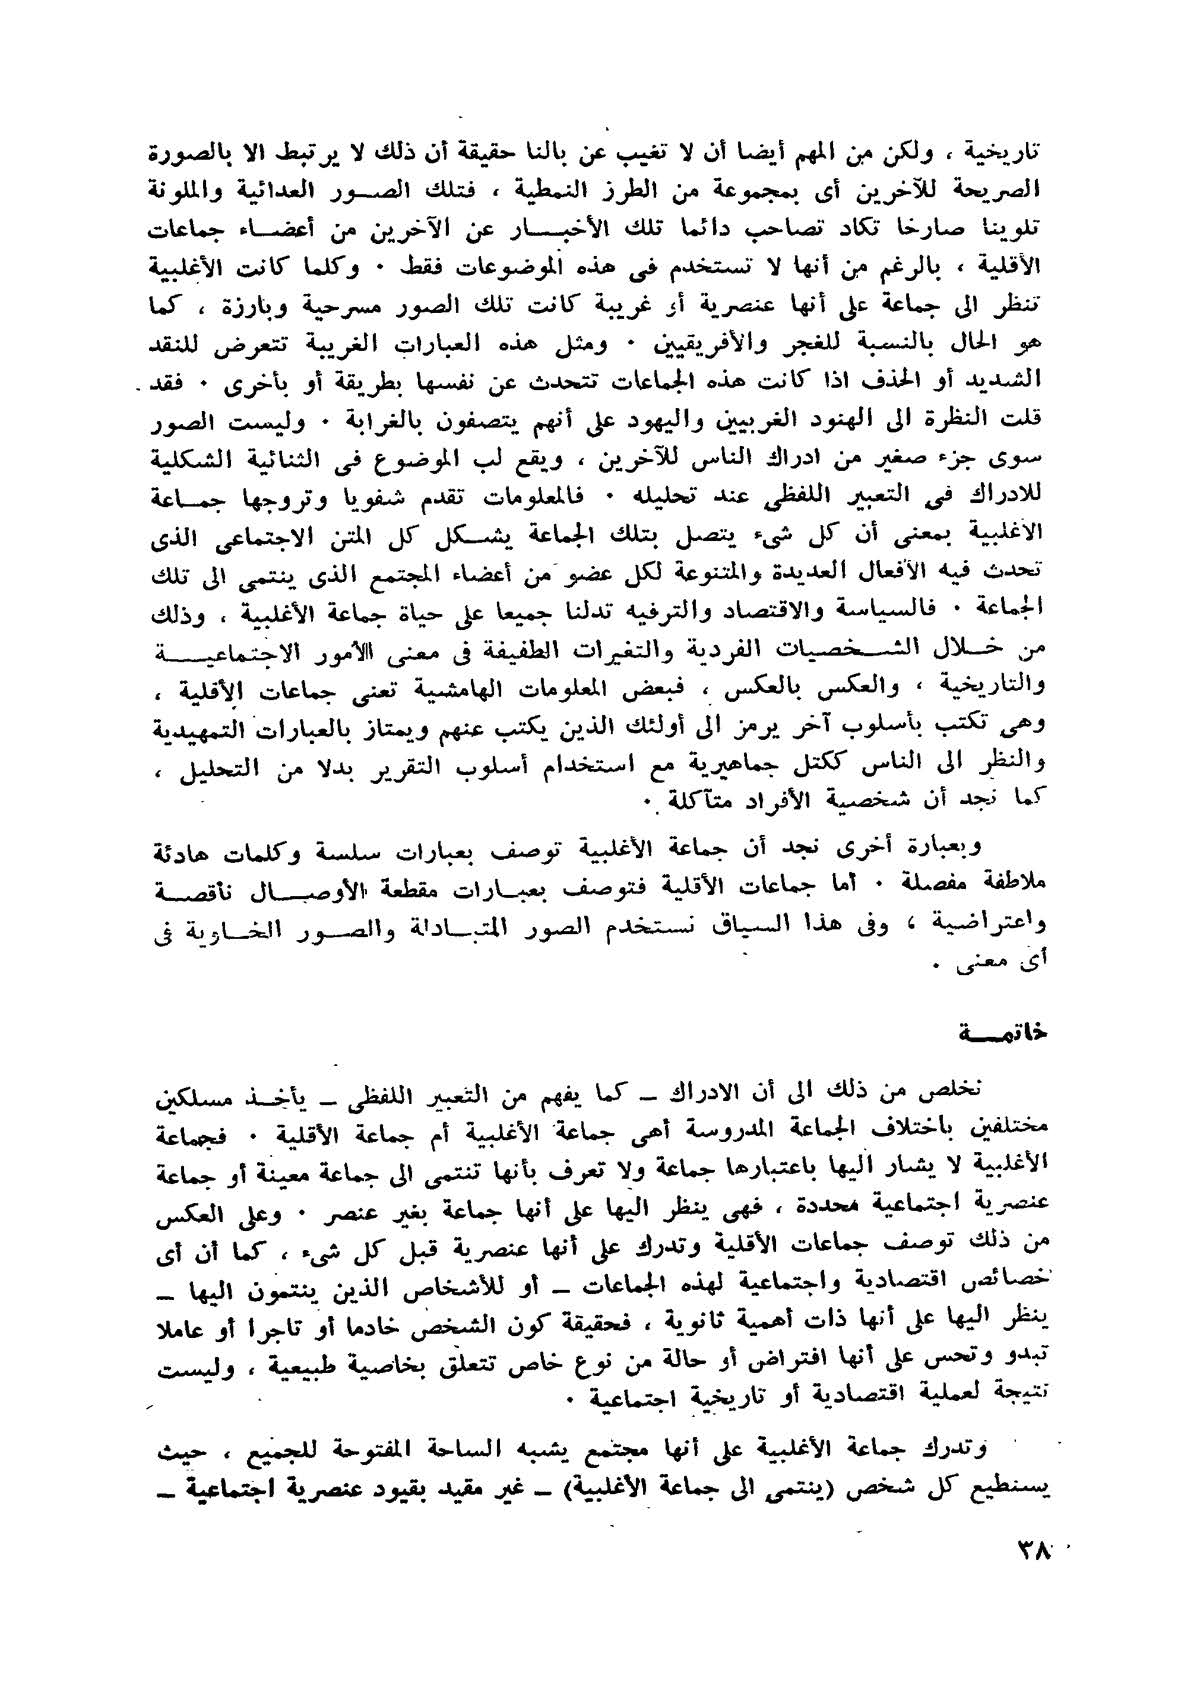 تاريخية ، ولكن من المهم أيضا أن لا تغيب عن بالنا حقيقة أن ذلك لا يرتبط الا بالصورة
الصريحة للآخرين أى بمجموعة من الطرز النمطية ، فتلك الصور العدائية والملونة
تلوينا صارخا تكاد تصاحب دائما تلك الأخبار عن الآخرين من أعضاء جماعات
الأقلية ، بالرغم من أنها لا تستخدم فى هذه الموضوعات فقط ٠ وكلما كانت الأغلبية
تنظر الى جماعة على أنها عنصرية أو غريبة كانت تلك الصور مسرحية وبارزة ، كما
هو الحال بالنسبة للغجر والأفريقيين ٠ ومثل هذه العبارات الغريبة تتعرض للنقد
الشديد أو الحذف اذا كانت هذه الجماعات تتحدث عن نفسها بطريقة أو بأخرى ٠ فقد
قلت النظرة الى الهنود الغربيين واليهود على أنهم يتصفون بالغرابة ٠ وليست الصور
سوى جزء صغير من ادراك الناس للآخرين ، ويقع لب الموضوع فى الثنائية الشكلية
للادراك فى التعبير اللفظى عند تحليله ٠ فالمعلومات تقدم شفويا وتروجها جماعة
الأغلبية بمعنى أن كل شىء يتصل بتلك الجماعة يشكل كل المتن الاجتماعى الذى
تحدث فيه الأفعال العديدة والمتنوعة لكل عضو من أعضاء المجتمع الذى ينتمى الى تلك
الجماعة ٠ فالسياسة والاقتصاد والترفيه تدلنا جميعا على حياة جماعة الأغلبية ، وذلك
من خلال الشخصيات الفردية والتغيرات الطفيفة فى معنى الأمور الاجتماعية
والتاريخية ، والعكس بالعكس ، فبعض المعلومات الهامشية تعنى جماعات الأقلية ،
وهى تكتب بأسلوب آخر يرمز الى أولئك الذين يكتب عنهم ويمتاز بالعبارات التمهيدية
والنظر الى الناس ككتل جماهيرية مع استخدام أسلوب التقرير بدلا من التحليل ،
كما نجد أن شخصية الأفراد متآكلة ٠
وبعبارة أخرى نجد أن جماعة الأغلبية توصف بعبارات سلسة وكلمات هادئة
ملاطفة مفصلة ٠ أما جماعات الأقلية فتوصف بعبارات مقطعة الأوصال ناقصة
واعتراضية ، وفى هذا السياق نستخدم الصور المتبادلة والصور الخاوية فى
أى معنى ٠
خاتمة
نخلص من ذلك الى أن الادراك ــ كما يفهم من التعبير اللفظى ــ يأخذ مسلكين
مختلفين باختلاف الجماعة المدروسة أهى جماعة الأغلبية أم جماعة الأقلية ٠ فجماعة
الأغلبية لا يشار اليها باعتبارها جماعة ولا تعرف بأنها تنتمى الى جماعة معينة أو جماعة
عنصرية اجتماعية محددة ، فهى ينظر اليها على أنها جماعة بغير عنصر ٠ وعلى العكس
من ذلك توصف جماعات الأقلية وتدرك على أنها عنصرية قبل كل شىء ، كما أن أى
خصائص اقتصادية واجتماعية لهذه الجماعات ــ أو للأشخاص الذين ينتمون اليها ــ
ينظر اليها على أنها ذات أهمية ثانوية ، فحقيقة كون الشخص خادما أو تاجرا أو عاملا
تبدو وتحس على أنها افتراض أو حالة من نوع خاص تتعلق بخاصية طبيعية ، وليست
نتيجة لعملية اقتصادية أو تاريخية اجتماعية ٠
وتدرك جماعة الأغلبية على أنها مجتمع يشبه الساحة المفتوحة للجميع ، حيث
يستطيع كل شخص (ينتمى الى جماعة الأغلبية) ــ غير مقيد بقيود عنصرية اجتماعية ــ
٣٨